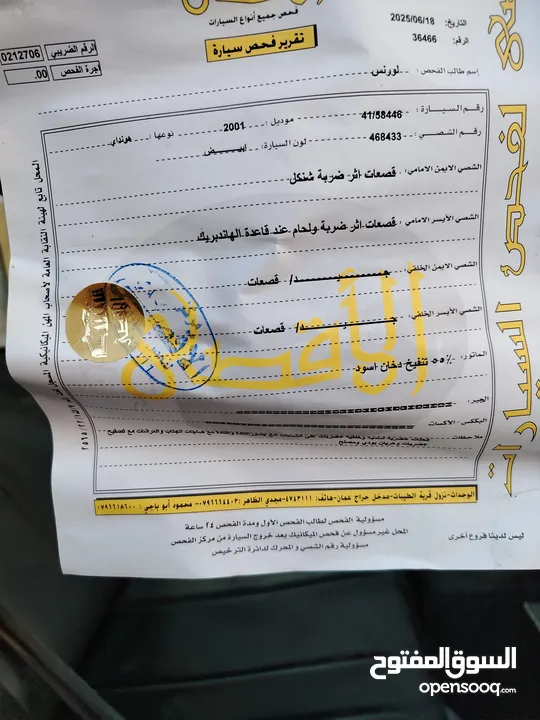 فحص جميع أنواع السيارات
تقرير فحص سيارة
التاريخ: 2025/06/18
الرقم: 36466
الرقم الضريبي 0212706
أجرة الفحص 00.
إسم طالب الفحص: لورنس
رقم السيارة: 41/58446 موديل: 2001 نوعها: هونداي
رقم الشصي: 468433 لون السيارة: ابيض
الشصي الايمن الامامي: قصعات اثر ضربة شنكل
الشصي الأيسر الامامي: قصعات اثر ضربة ولحام عند قاعدة الهاندبريك
الشصي الايمن الخلفي: جيد/ قصعات
الشصي الأيسر الخلفي: جيد/ قصعات
الماتور: %55 تنفيخ دخان اسود
الجير:
البكس - الاكسات
ملاحظات:
الوحدات-نزول قرية الطيبات-مدخل حراج عمان-هاتف: ٤٧٤٣١١١-مجدي الظاهر: ٠٧٩٦٦٦٤٤٠٣- محمود أبو ناجي: ٠٧٩٦٦١٨٦٠٠
مسؤولية الفحص لطالب الفحص الأول ومدة الفحص ٢٤ ساعة
المحل غير مسؤول عن فحص الميكانيك بعد خروج السيارة من مركز الفحص
مسؤولية رقم الشصي و المحرك لدائرة الترخيص
ليس لدينا فروع أخرى
المحل تابع لهيئة النقابة العامة لأصحاب المهن الميكانيكية
لفحص السيارات
الأقصى
السوق المفتوح
opensooq.com